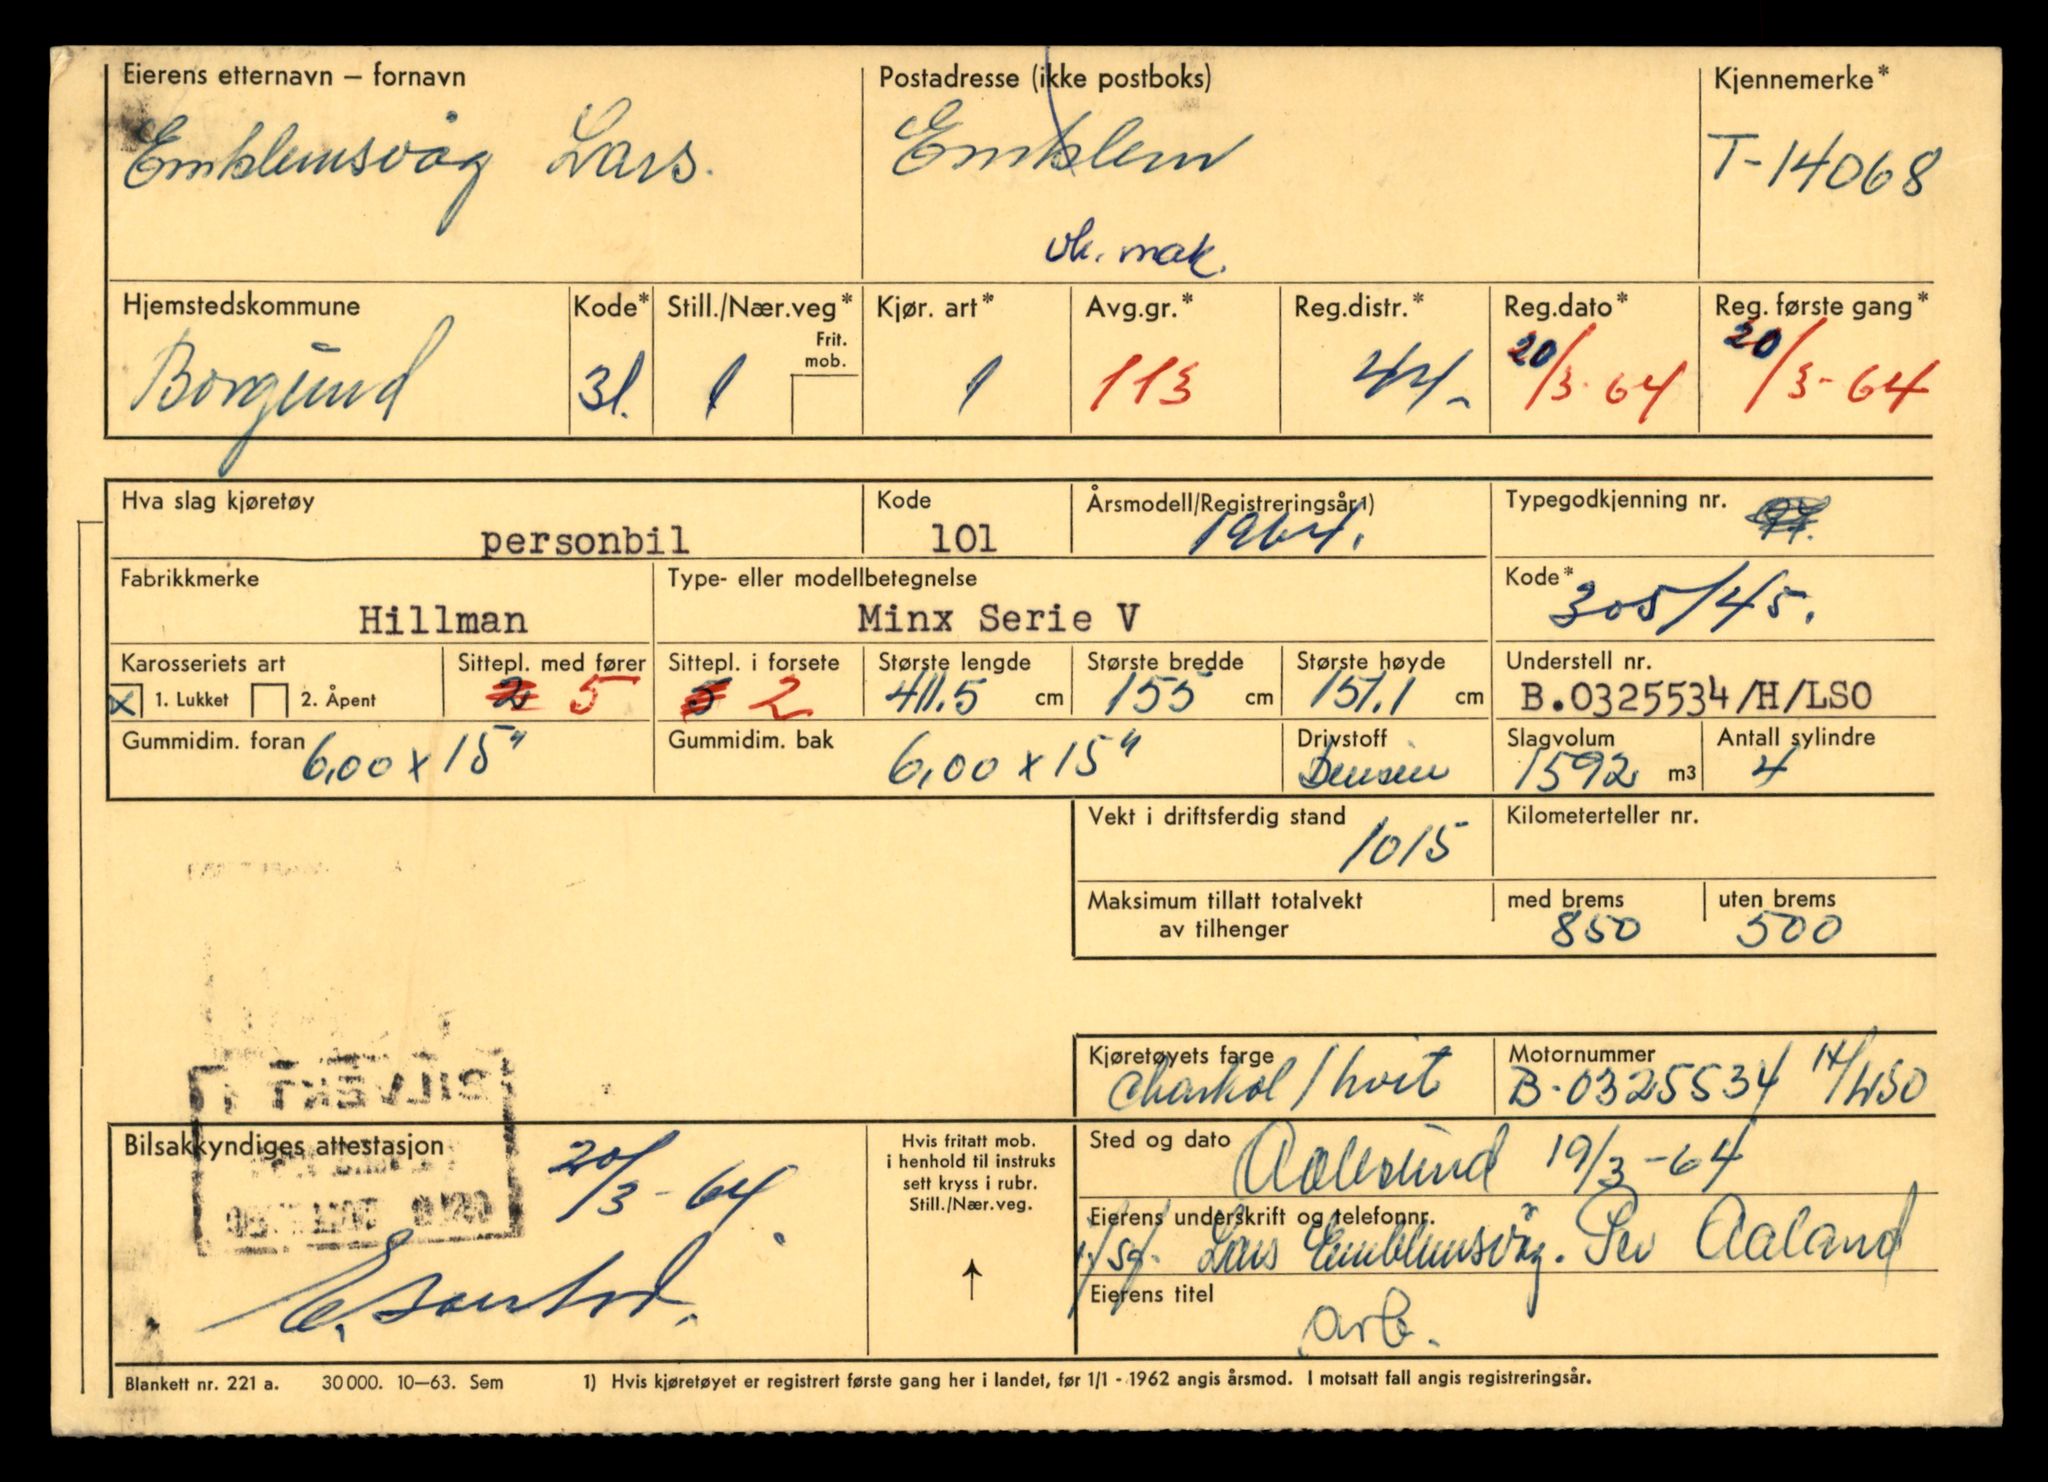 Eierens etternavn – fornavn Postadresse (ikke postboks) Kjennemerke*
Emblemsvåg Lars. Emblem T-14068
vk. mak.
Hjemstedskommune Kode* Still./Nær.veg* Kjør. art* Avg.gr.* Reg.distr.* Reg.dato* Reg. første gang*
Frit. mob.
Borgund 31. 1 1 113 44- 20/3-64 20/3-64
Hva slag kjøretøy Kode Årsmodell/Registreringsår1) Typegodkjenning nr.
personbil 101 1964.
Fabrikkmerke Type- eller modellbetegnelse Kode*
Hillman Minx Serie V 305/45.
Karosseriets art Sittepl. med fører Sittepl. i forsete Største lengde Største bredde Største høyde Understell nr.
x 1. Lukket 2. Åpent 2 5 5 2 411.5 cm 155 cm 151.1 cm B.0325534/H/LSO
Gummidim. foran Gummidim. bak Drivstoff Slagvolum Antall sylindre
6,00 x 15" 6,00 x 15" Bensin 1592 m3 4
Vekt i driftsferdig stand Kilometerteller nr.
1015
Maksimum tillatt totalvekt med brems uten brems
av tilhenger 850 500
Kjøretøyets farge Motornummer
charkol/hvit B-0325534 H/LSO
Bilsakkyndiges attestasjon
20/3-64.
Hvis fritatt mob.
i henhold til instruks
sett kryss i rubr.
Still./Nær.veg.
↑
Sted og dato
Aalesund 19/3-64
Eierens underskrift og telefonnr.
Lars Emblemsvåg. Per Aaland
Eierens titel
arb.
Blankett nr. 221 a. 30 000. 10–63. Sem 1) Hvis kjøretøyet er registrert første gang her i landet, før 1/1 - 1962 angis årsmod. I motsatt fall angis registreringsår.